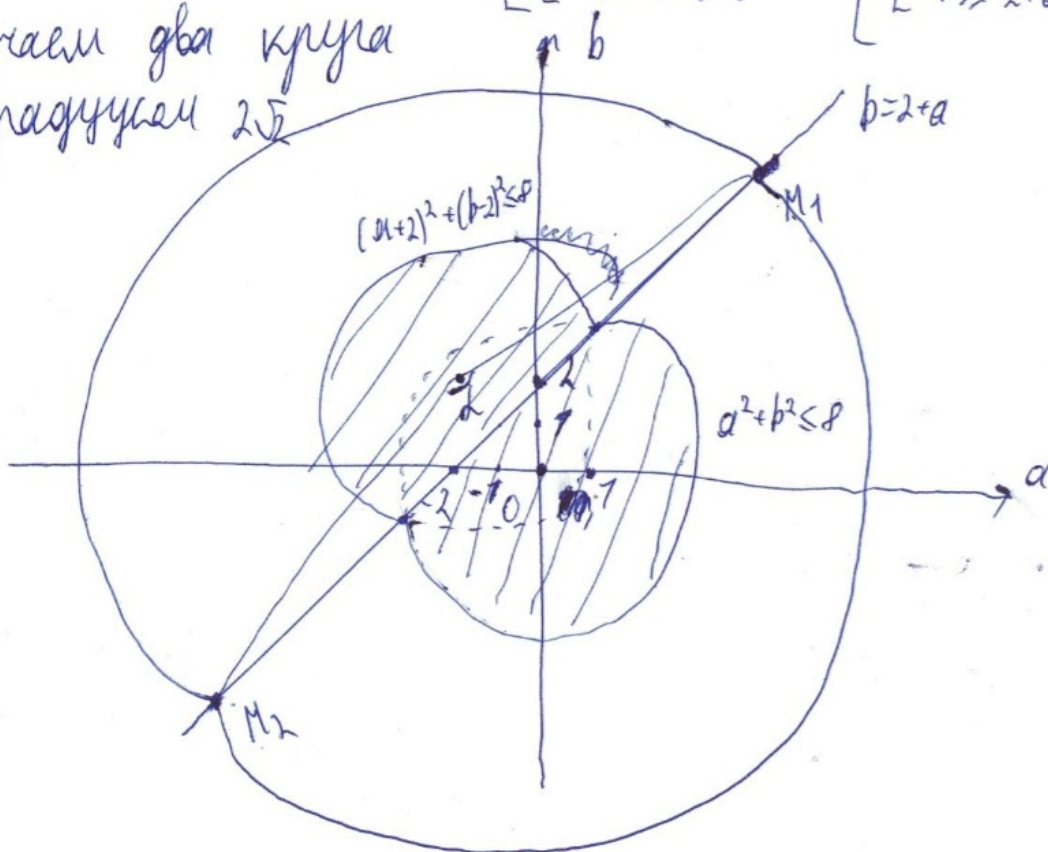 два круга
радиусом 2√2
b
b=2+a
M1
(a+2)²+(b-2)²≤8
2
2
1
a²+b²≤8
a
-2 -1 0 1
M2